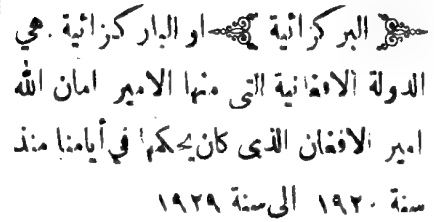 البركزائية او الباركزائية. هي
الدولة الافغانية التى منها الامير امان الله
امير الافغان الذى كان يحكمها في أيامنا منذ
سنة ١٩٢٠ الى سنة ١٩٢٩